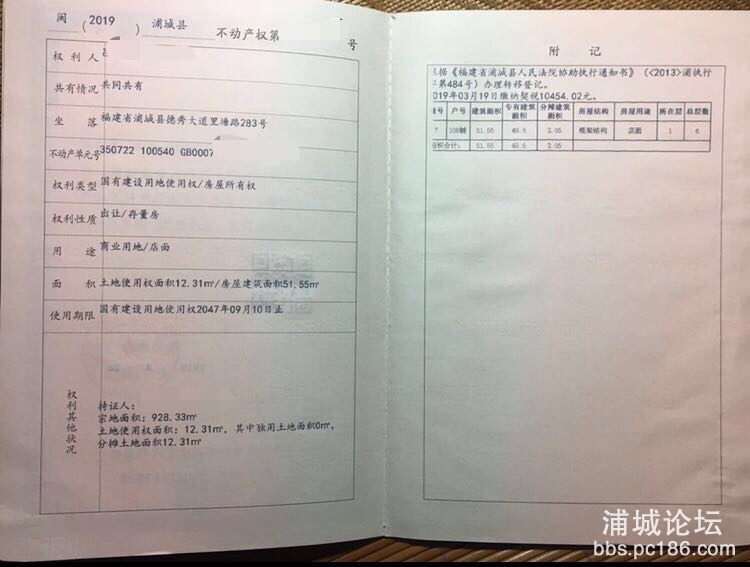 闽(2019)浦城县不动产权第 号
权利人
共有情况 共同共有
坐落 福建省浦城县德秀大道里塘路283号
不动产单元号 350722 100540 GB0007
权利类型 国有建设用地使用权/房屋所有权
权利性质 出让/存量房
用途 商业用地/店面
面积 土地使用权面积12.31㎡/房屋建筑面积51.55㎡
使用期限 国有建设用地使用权2047年09月10日止
权利其他状况
持证人:
宗地面积:928.33㎡
土地使用权面积:12.31㎡,其中独用土地面积0㎡,
分摊土地面积12.31㎡
附记
据《福建省浦城县人民法院协助执行通知书》(<2013>浦执行
第484号)办理转移登记。
019年03月19日缴纳契税10454.02元。
号 户号 建筑面积 专有建筑面积 分摊建筑面积 房屋结构 房屋用途 所在层 总层数
7 51.55 49.5 2.05 框架结构 店面 1 6
积合计: 51.55 49.5 2.05
浦城论坛
bbs.pc186.com